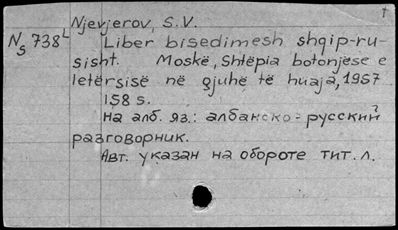 Njevjerov, S.V.
Ns 738L
Liber bisedimesh shqip-ru-
sisht. Moskë, Shtëpia botonjëse e
letërsisë në gjuhë të huaja, 1957
158 s.
На алб. яз.: албанско-русский
разговорник.
Авт. указан на обороте тит. л.